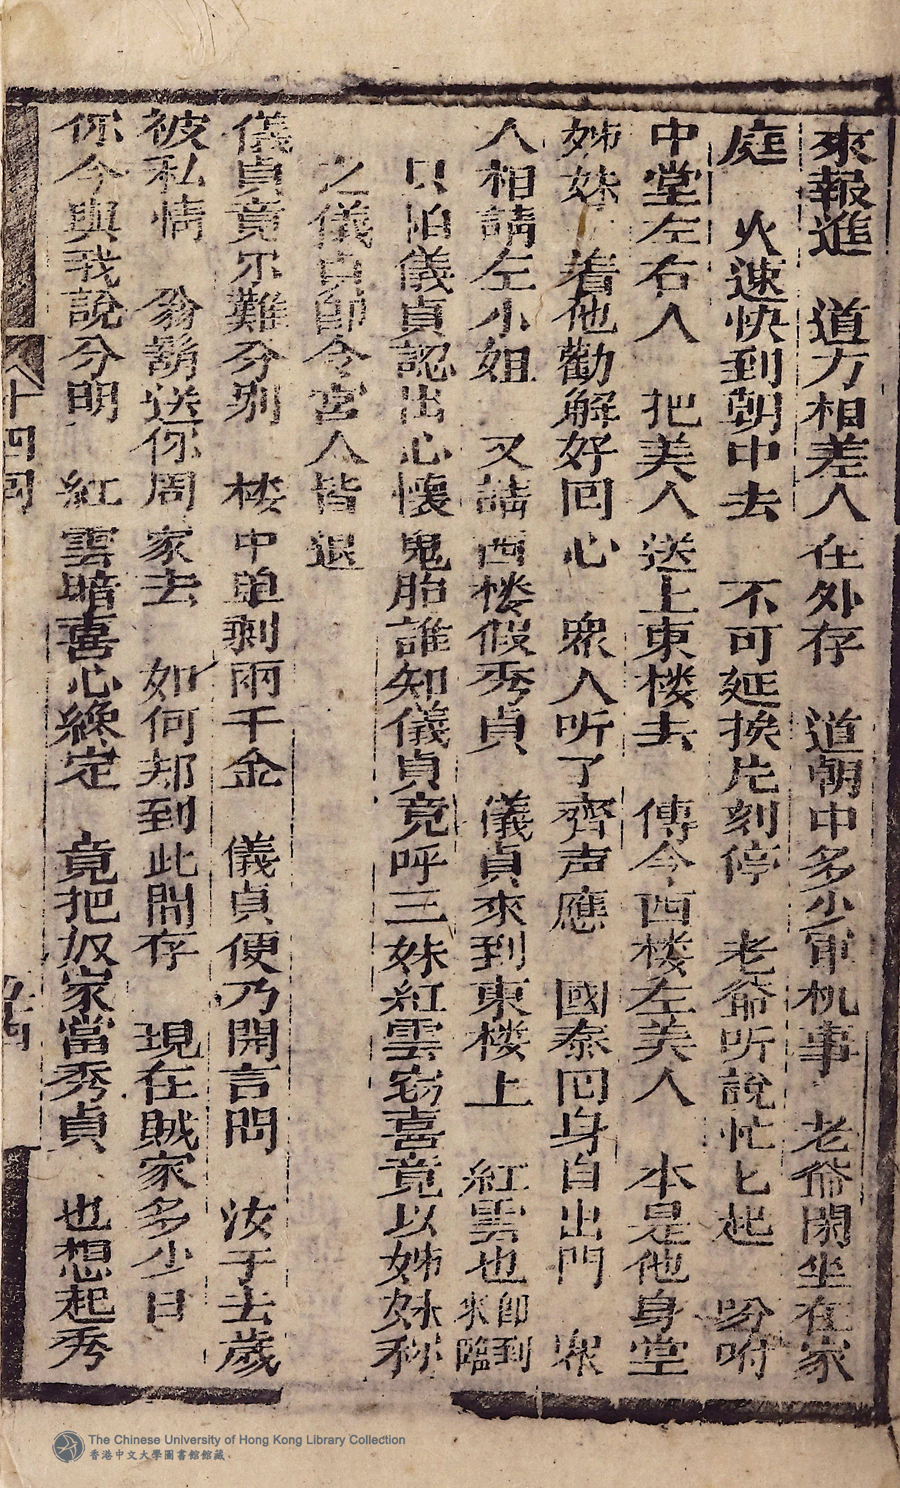 來報進　道方相差人在外存　道朝中多少軍机事　老爺閑坐在家
庭　火速快到朝中去　不可延挨片刻停　老爺听說忙匕起　吩咐
中堂左右人　把美人送上東楼去　傳令西楼左美人　本是他身堂
姊妹　着他勸解好回心　眾人听了齊声應　國泰回身自出門　眾
人相請左小姐　又請西楼假秀貞　儀貞來到東楼上　紅雲也即到來臨
只怕儀貞認出心懷鬼胎誰知儀貞竟呼三妹紅雲窃喜竟以姊妹称
之儀貞即令宮人皆退
儀貞竟尔難分别　楼中单剩兩千金　儀貞便乃開言問　汝于去歲
被私情　翁鷸送你周家去　如何却到此間存　現在賊家多少日
你今與我說分明　紅雲暗喜心纔定　竟把奴家當秀貞　也想起秀
十四回
The Chinese University of Hong Kong Library Collection
香港中文大學圖書館館藏